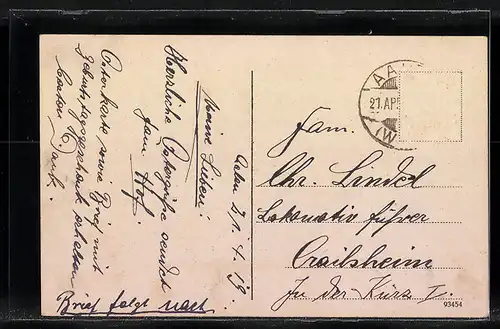 Aalen 21. 4. 19.
Meine Lieben!
Herzliche Ostergrüße sendet
Fam. Hof.
Osterkarte sowie Brief mit
Geburtstagsgeschenk erhalten
besten Dank.
Brief folgt nach.
AA
21.AP
(W
Fam.
Chr. Lindel
Lokomotivführer
Crailsheim
In der Kürz
93454